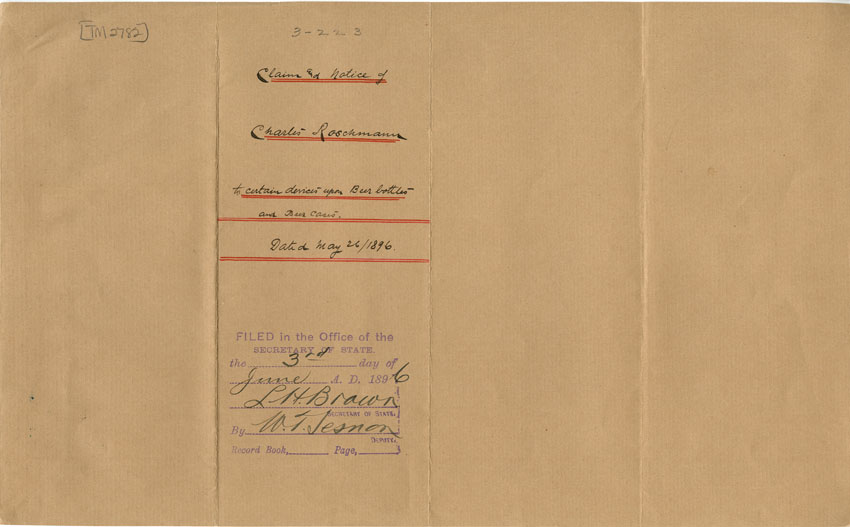 [TM2782]
3-223
Claim and Notice of
Charles Roschmann
to certain devices upon Beer bottles
and Beer Cases.
Dated May 26/1896.
FILED in the Office of the
SECRETARY OF STATE.
the 3rd day of
June A. D. 1896
L.H. Brown
SECRETARY OF STATE.
By W.T. Sesnon
DEPUTY.
Record Book, Page,